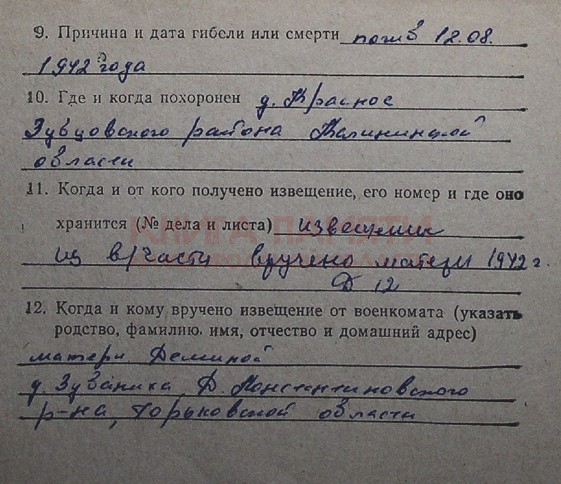 9. Причина и дата гибели или смерти погиб 12.08.
1942 года
10. Где и когда похоронен д. Красное
Зубцовского района Калининской
области
11. Когда и от кого получено извещение, его номер и где оно
хранится (№ дела и листа) извещение
из в/части вручено матери 1942 г.
Д 12
12. Когда и кому вручено извещение от военкомата (указать
родство, фамилию, имя, отчество и домашний адрес)
матери Деминой
д. Зубаниха, Д. Константиновского
р-на, Горьковской области
КНИГА ПАМЯТИ